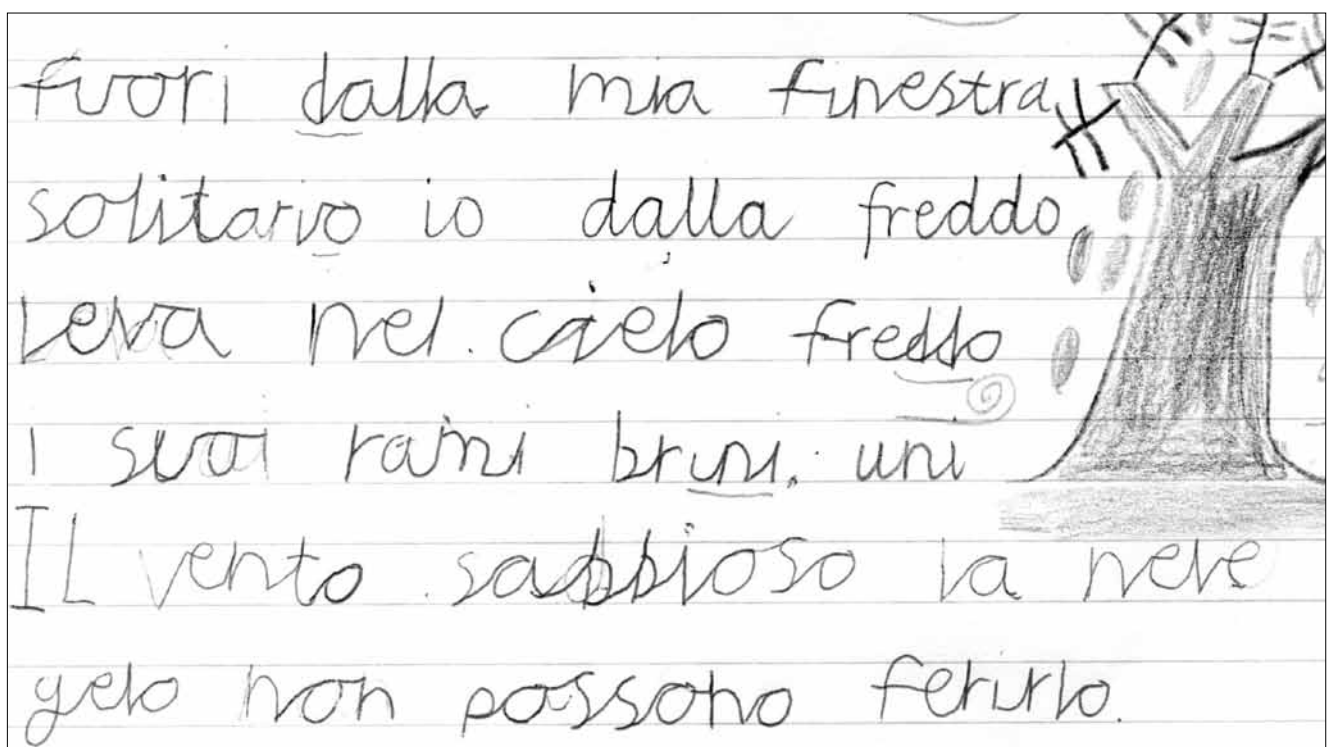 fuori dalla mia finestra
solitario io dalla freddo,
Leva nel cielo freddo
i suoi rami bruni. uni
IL vento sabbioso la neve
gelo non possono ferirlo.